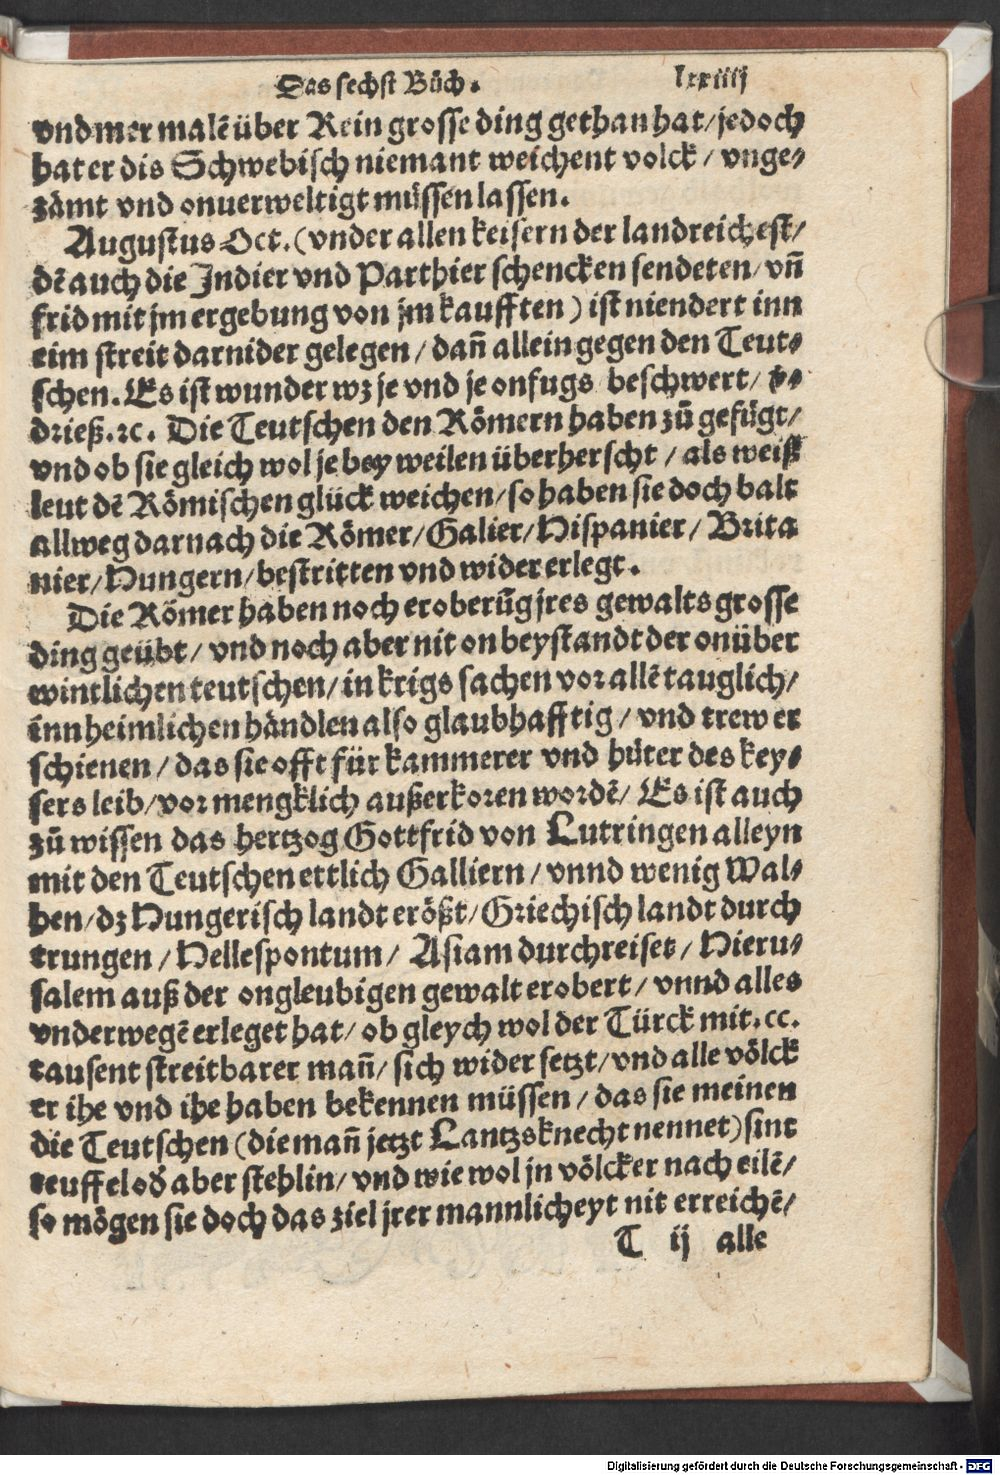 Das sechst Bůch. lxxiiij
vnd mer malē über Rein grosse ding gethan hat/ jedoch
hat er dis Schwebisch niemant weichent volck / vnge⸗
zämt vnd onuerweltigt müssen lassen.
Augustus Oct. (vnder allen keisern der landreichest/
dē auch die Indier vnd Parthier schencken sendeten/ vn̄
frid mit jm ergebung von jm kaufften) ist niendert inn
eim streit darnider gelegen / dan̄ allein gegen den Teut⸗
schen. Es ist wunder wz je vnd je onfugs beschwert/
drieß. ꝛc. Die Teutschen den Römern haben zů gefügt/
vnd ob sie gleich wol je bey weilen überherscht / als weiß
leut dē Römischen glück weichen/ so haben sie doch balt
allweg darnach die Römer/ Galier/ Hispanier/ Brita
nier/ Hungern/ bestritten vnd wider erlegt.
Die Römer haben noch eroberūg jres gewalts grosse
ding geübt/ vnd noch aber nit on beystandt der onüber
wintlichen teutschen/ in krigs sachen vor allē tauglich/
inn heimlichen händlen also glaubhafftig / vnd trew er
schienen / das sie offt für kammerer vnd hüter des key⸗
sers leib/ vor mengklich außerkoren wordē/ Es ist auch
zů wissen das hertzog Gottfrid von Lutringen alleyn
mit den Teutschen ettlich Galliern / vnnd wenig Wal⸗
hen/ dz Hungerisch landt erößt/ Griechisch landt durch
trungen / Hellespontum / Asiam durchreiset/ Hieru⸗
salem auß der ongleubigen gewalt erobert/ vnnd alles
vnderwegē erleget hat/ ob gleych wol der Türck mit. cc.
tausent streitbarer man̄/ sich wider setzt/ vnd alle völck
er ihe vnd ihe haben bekennen müssen / das sie meinen
die Teutschen (die man̄ jetzt Lantzsknecht nennet) sint
teuffel od̓ aber stehlin/ vnd wie wol jn völcker nach eilē/
so mögen sie doch das ziel jrer mannlicheyt nit erreichē/
T ij alle
Digitalisierung gefördert durch die Deutsche Forschungsgemeinschaft - DFG